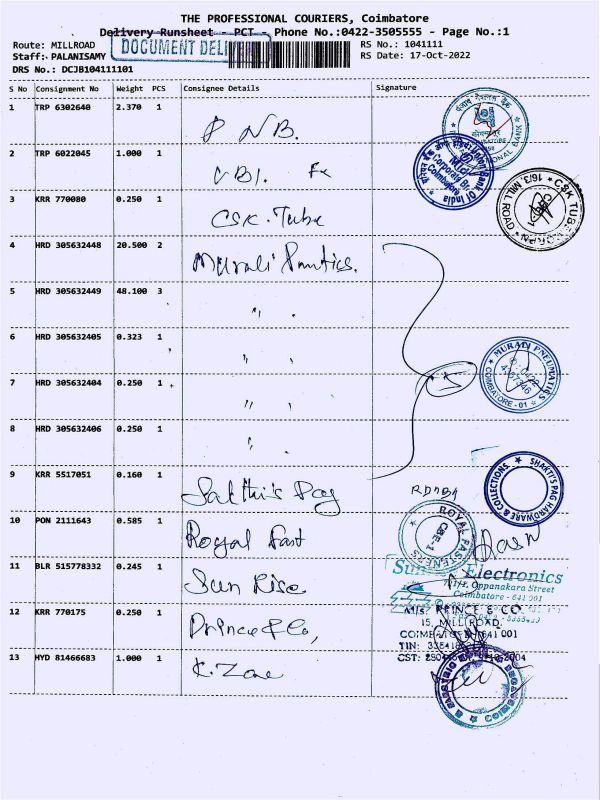 THE PROFESSIONAL COURIERS, Coimbatore
Delivery Runsheet - PCT - Phone No.:0422-3505555 - Page No.:1
Route: MILLROAD
DOCUMENT DELI
RS No.: 1041111
Staff: PALANISAMY
RS Date: 17-Oct-2022
DRS No.: DCJB104111101
S No Consignment No Weight PCS Consignee Details Signature
1 TRP 6302640 2.370 1 P N B.
2 TRP 6022045 1.000 1
Union Bank Of India
Corporate Br.
Coimbatore
3 KRR 770080 0.250 1 CSK. Tube
CSK TUBE
16/3, MILL ROAD
CBE-1
4 HRD 305632448 20.500 2 Murali
5 HRD 305632449 48.100 3 " "
6 HRD 305632405 0.323 1 " "
MURALI PNEUMATICS
COIMBATORE - 01
7 HRD 305632404 0.250 1 " "
5
8 HRD 305632406 0.250 1 " "
9 KRR 5517051 0.160 1 Sakthi's Pag
SHAKTI'S PAG HARDWARE & COLLECTIONS
10 PON 2111643 0.585 1 Royal Fast
ROYAL FASTENERS
CBE-1
11 BLR 515778332 0.245 1 Sun Rise
Electronics
Oppanakara Street
Coimbatore - 641 001
12 KRR 770175 0.250 1 Prince & Co,
M/s. PRINCE & CO.
15, MILL ROAD,
COIMBATORE - 641 001
TIN:
CST:
13 HYD 81466683 1.000 1 K. Zone